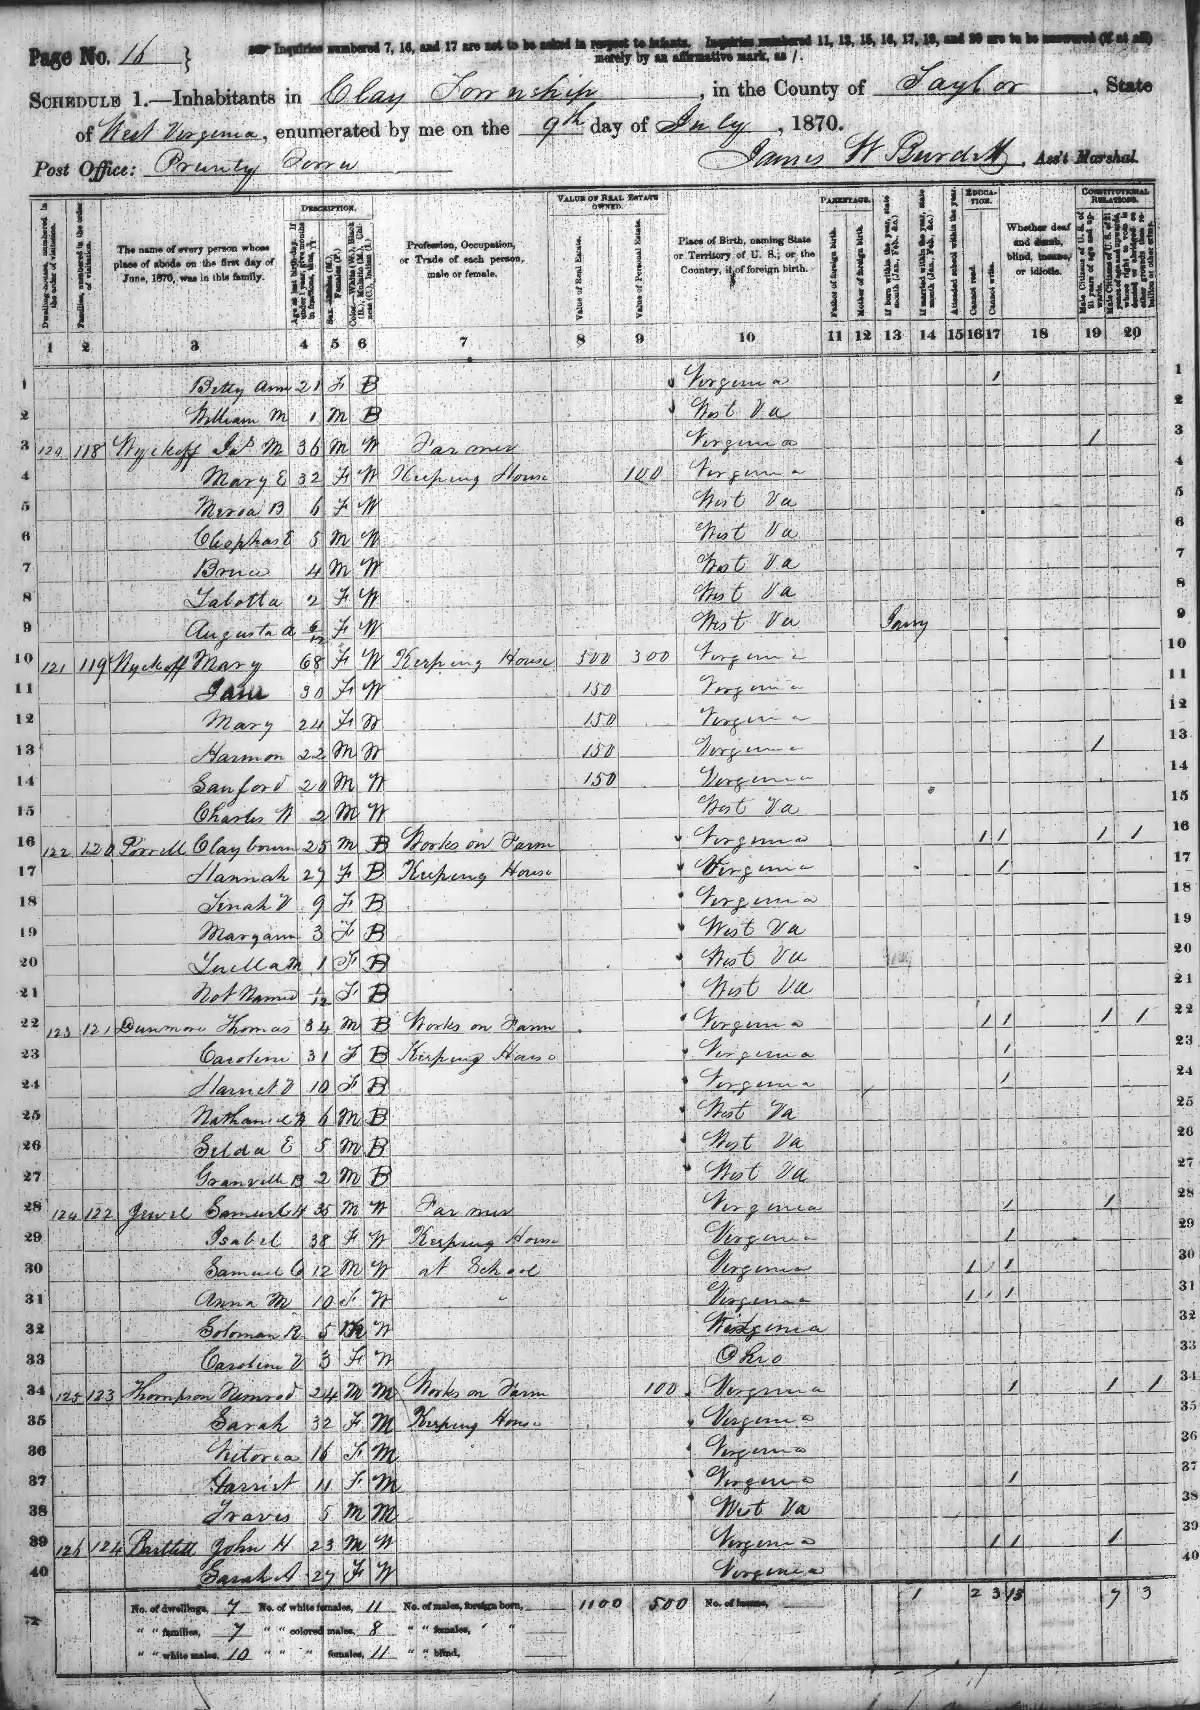 Page No. 16
Inquiries numbered 7, 16, and 17 are not to be asked in respect to infants. Inquiries numbered 11, 12, 15, 16, 17, 19, and 20 are to be answered (if at all)
merely by an affirmative mark, as /.
SCHEDULE 1.—Inhabitants in Clay Township, in the County of Taylor, State
of West Virginia, enumerated by me on the 9th day of July, 1870.
Post Office: Prunty Town
James W Burdett, Ass't Marshal.
DESCRIPTION. VALUE OF REAL ESTATE OWNED. PARENTAGE. EDUCATION. CONSTITUTIONAL RELATIONS.
Dwelling-houses, numbered in the order of visitation.
Families, numbered in the order of visitation.
The name of every person whose place of abode on the first day of June, 1870, was in this family.
Age at last birth-day. If under 1 year, give months in fractions, thus, 3/12
Sex.—Males (M.), Females (F.)
Color.—White (W.), Black (B.), Mulatto (M.), Chinese (C.), Indian (I.)
Profession, Occupation, or Trade of each person, male or female.
Value of Real Estate.
Value of Personal Estate.
Place of Birth, naming State or Territory of U. S.; or the Country, if of foreign birth.
Father of foreign birth.
Mother of foreign birth.
If born within the year, state month (Jan., Feb., &c.)
If married within the year, state month (Jan., Feb., &c.)
Attended school within the year.
Cannot read.
Cannot write.
Whether deaf and dumb, blind, insane, or idiotic.
Male Citizens of U. S. of 21 years of age and upwards.
Male Citizens of U. S. of 21 years of age and upwards, whose right to vote is denied or abridged on other grounds than rebellion or other crime.
1 2 3 4 5 6 7 8 9 10 11 12 13 14 15 16 17 18 19 20
1 Betty Ann 21 F B Virginia / 1
2 William M 1 M B West Va 2
3 120 118 Wyckoff Jas M 36 M W Farmer Virginia / 3
4 Mary E 32 F W Keeping House 100 Virginia 4
5 B 6 F W West Va 5
6 Cleophas E 5 M W West Va 6
7 Bruce 4 M W West Va 7
8 Talotta 2 F W West Va 8
9 Augusta A 6/12 F W West Va 9
10 121 119 Wyckoff Mary 68 F W Keeping House 500 300 Virginia 10
11 Jane 30 F W 150 Virginia 11
12 Mary 24 F W 150 Virginia 12
13 Harmon 22 M W 150 Virginia / 13
14 Sanford 20 M W 150 Virginia 14
15 Charles W 2 M W West Va 15
16 122 120 Porrell Claybourn 25 M B Works on Farm Virginia / / / / 16
17 Hannah 27 F B Keeping House Virginia / 17
18 Tinah V 9 F B Virginia 18
19 Margann 3 F B West Va 19
20 Luella M 1 F B West Va 20
21 Not Named 1/12 F B West Va 21
22 123 121 Dunmore Thomas 34 M B Works on Farm Virginia / / / / 22
23 Caroline 31 F B Keeping House Virginia / 23
24 Harriet V 10 F B Virginia / 24
25 Nathaniel 6 M B West Va 25
26 Selda E 5 M B West Va 26
27 Granville B 2 M B West Va 27
28 124 122 Jewel Samuel H 35 M W Farmer Virginia / / 28
29 Isabel 38 F W Keeping House Virginia / 29
30 Samuel C 12 M W at School Virginia / / 30
31 Anna M 10 F W " Virginia / / 31
32 Soloman R 5 M W Virginia 32
33 Caroline V 3 F W Ohio 33
34 125 123 Thompson Nimrod 24 M M Works on Farm 100 Virginia / / / 34
35 Sarah 32 F M Keeping House Virginia 35
36 Victoria 16 F M Virginia 36
37 Harriet 11 F M Virginia / 37
38 Travis 5 M M West Va 38
39 126 124 Bartlett John H 23 M W Virginia / / / 39
40 Sarah A 27 F W Virginia 40
No. of dwellings, 7 No. of white females, 11 No. of males, foreign born, 1100 500 No. of insane, 1 2 3 13 7 3
" " families, 7 " " colored males, 8 " " females, " "
" " white males, 10 " " " females, 11 " " blind,